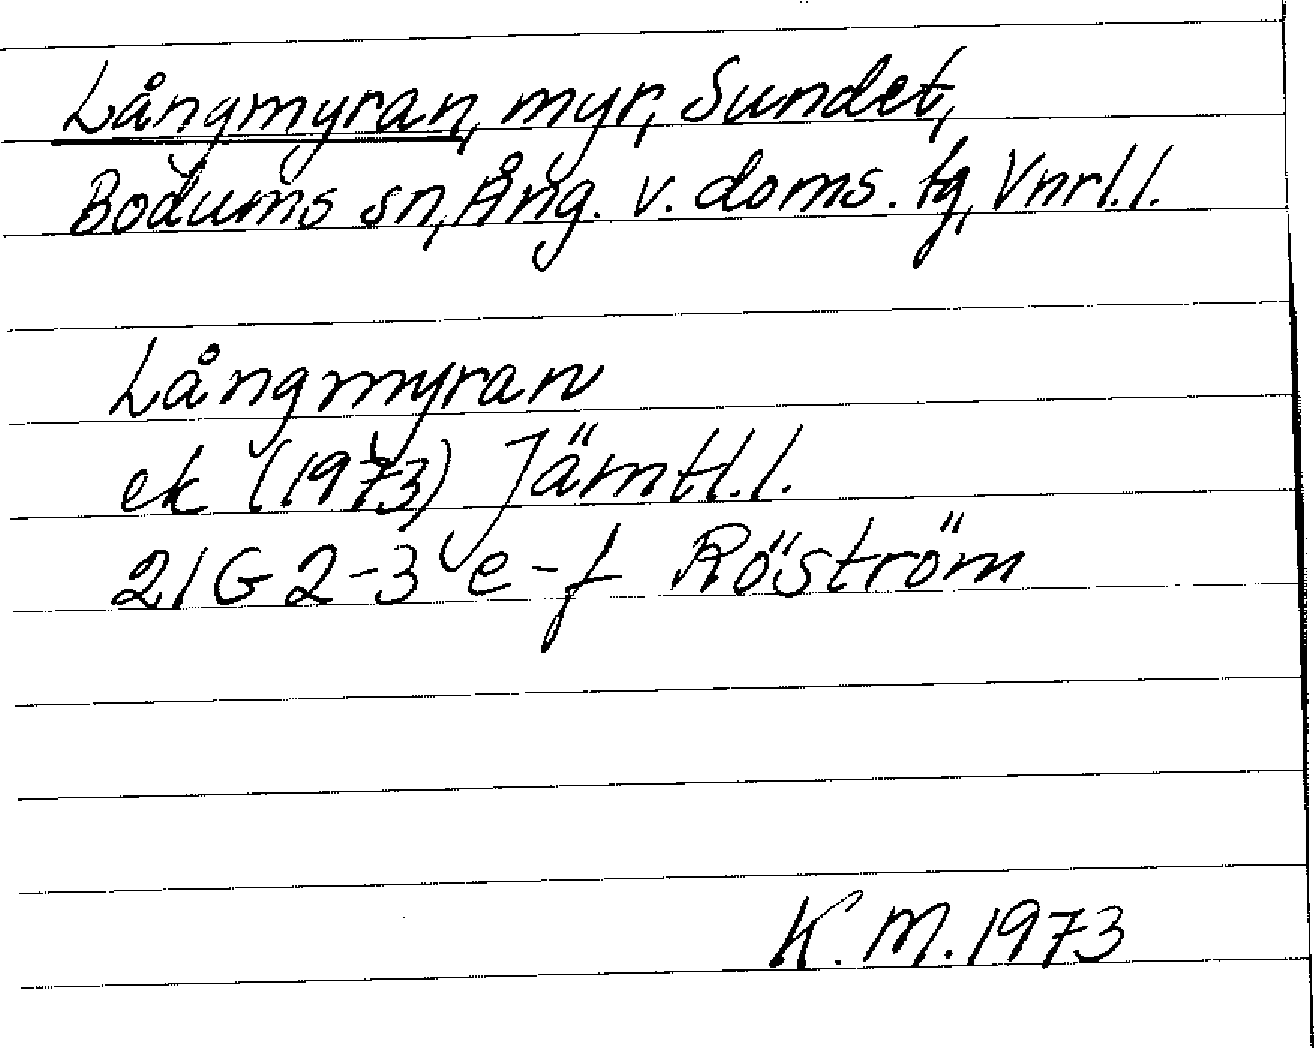 Långmyran, myr, Sundet,
Bodums sn, Ång. v. doms. tg, Vnrl.l.
Långmyran
ek (1973) Jämtl.l.
21G 2-3 e-f Röström
K.M. 1973